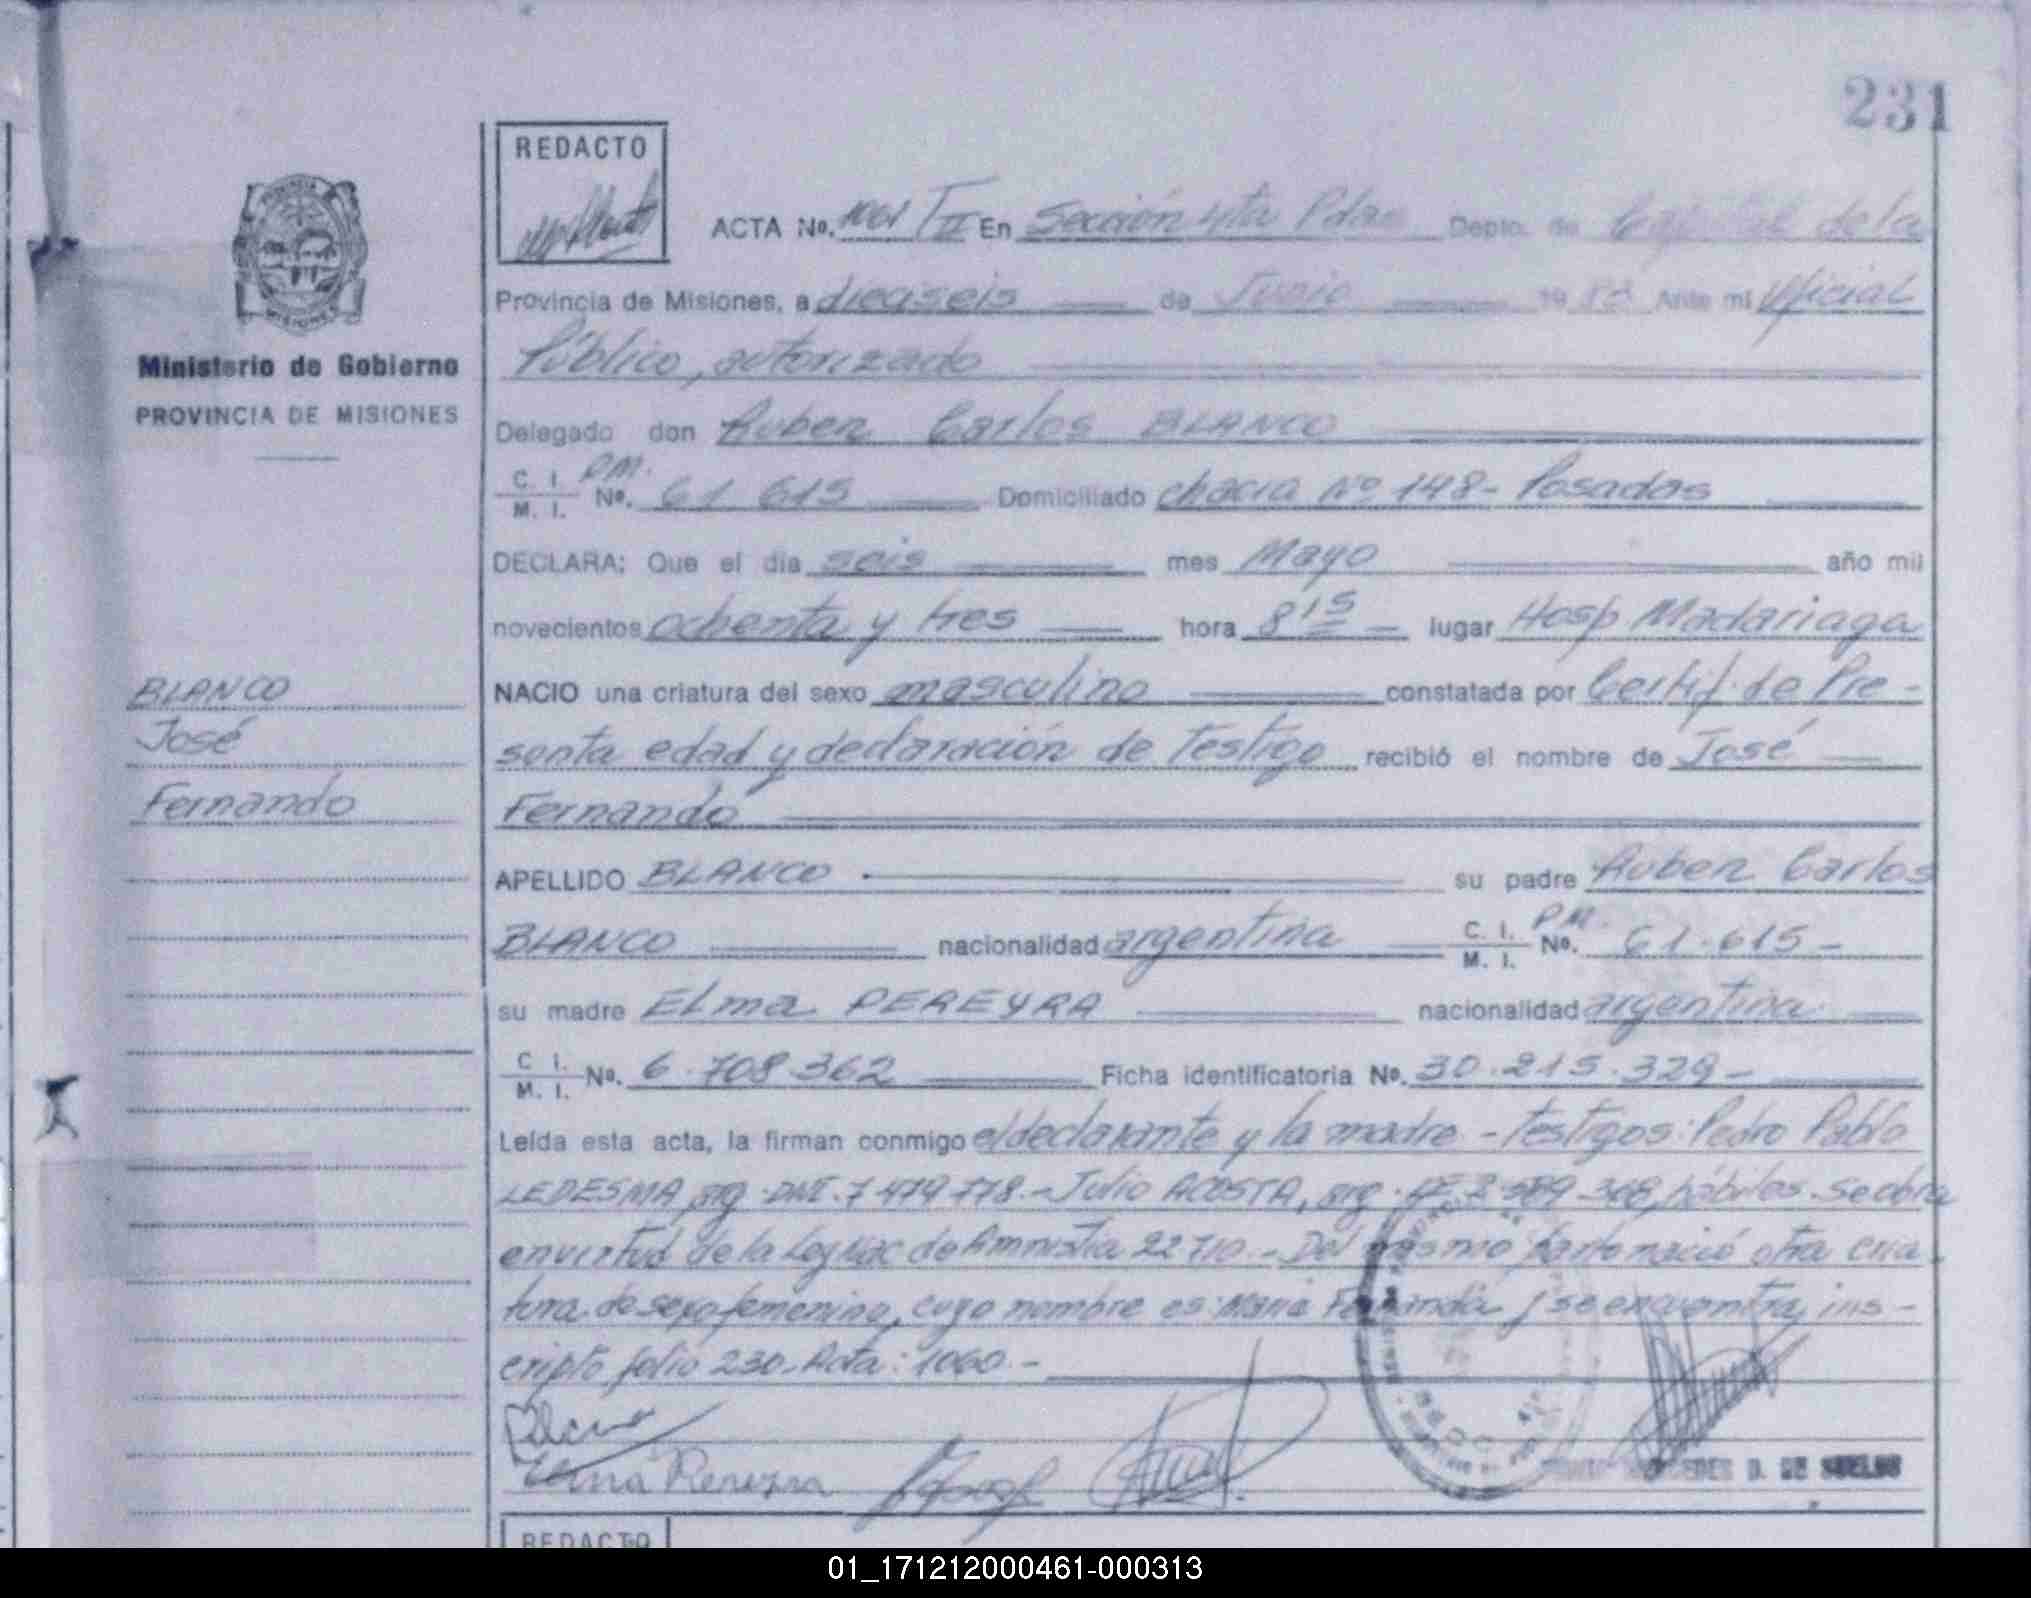 231
REDACTO
ACTA No. 1061 T II En Sección 4ta Pdas Depto. de Capital de la
Provincia de Misiones, a dieciseis de Junio 19 Ante mí Oficial
Público, autorizado
Ministerio de Gobierno
PROVINCIA DE MISIONES
Delegado don Ruben Carlos BLANCO
C. I. M. I. P.M. No. 61 615 Domiciliado chacra Nº 148 - Posadas
DECLARA: Que el día seis mes Mayo año mil
novecientos ochenta y tres hora 8 15 lugar Hosp Madariaga
BLANCO
José
Fernando
NACIO una criatura del sexo masculino constatada por Certif. de Pre-
sunta edad y declaración de Testigo recibió el nombre de José
Fernando
APELLIDO BLANCO su padre Ruben Carlos
BLANCO nacionalidad argentina C. I. M. I. P.M. No. 61.615 -
su madre Elma PEREYRA nacionalidad argentina
C I. M. I. No. 6.708.362 Ficha identificatoria No. 30.215.329 -
Leída esta acta, la firman conmigo el declarante y la madre - Testigos: Pedro Pablo
LEDESMA, arg. DNI. 7 479 778. - Julio ACOSTA, arg. hábiles. Se labra
en virtud de la Ley Nac de Amnistia 22 710. - Del mismo parto nació otra cria-
tura de sexo femenino, cuyo nombre es: Maria Fernanda y se encuentra ins-
cripto folio 230. Acta: 1060. -
Blanco
Elma Pereyra
D. DE SUELDO
REDACTO
01_171212000461-000313